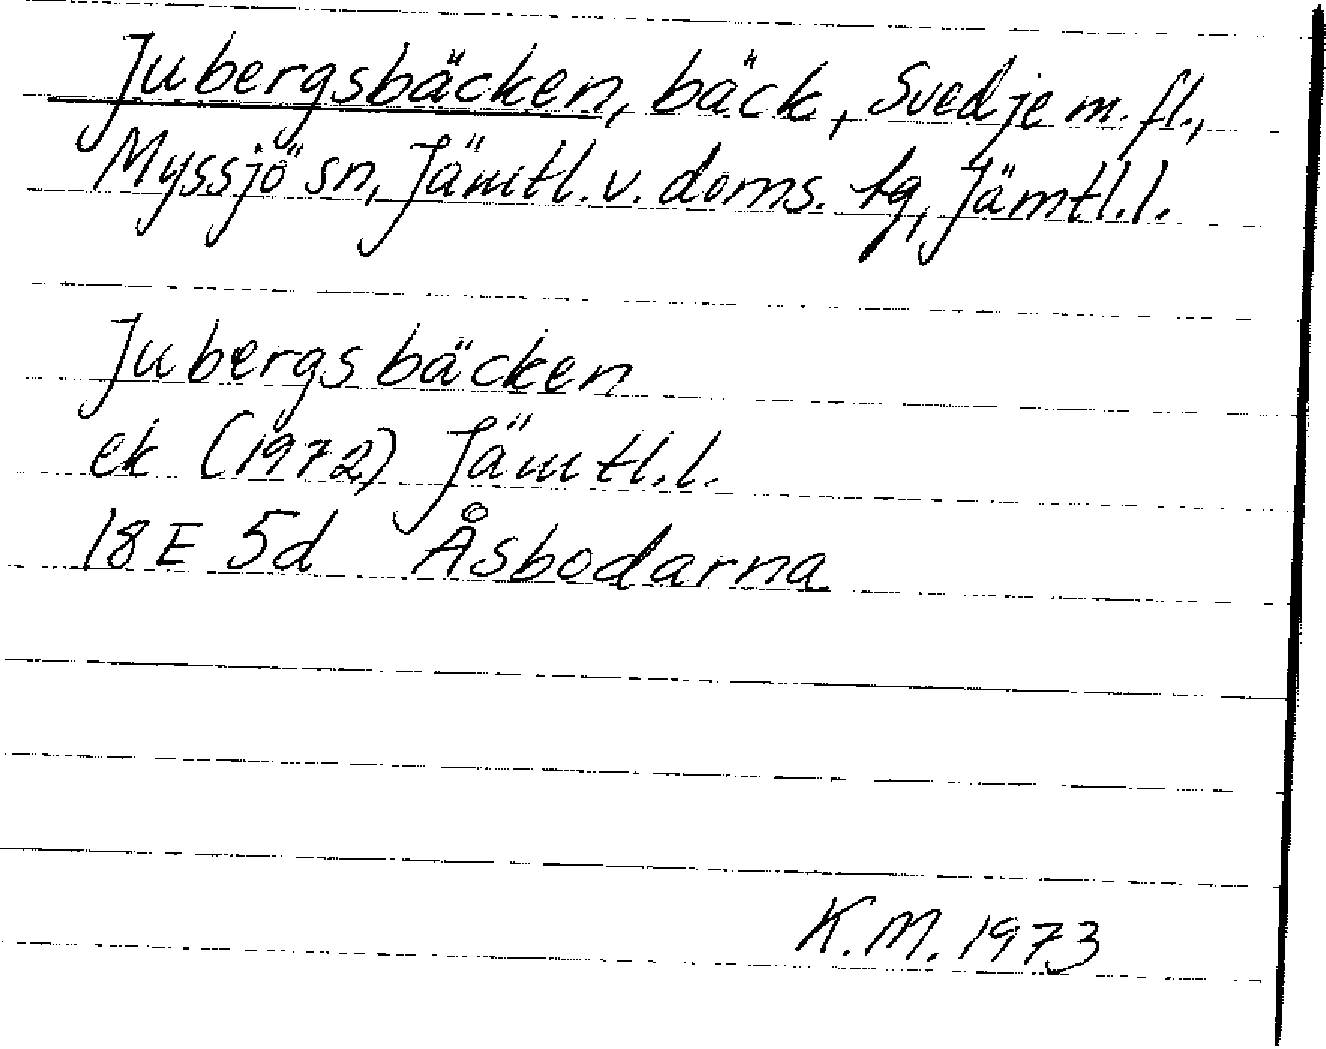 Jubergsbäcken, bäck, Svedje m. fl.,
Myssjö sn, Jämtl. v. doms. tg, Jämtl. l.
Jubergsbäcken
ek (1972) Jämtl. l.
18 E 5d Åsbodarna
K. M. 1973